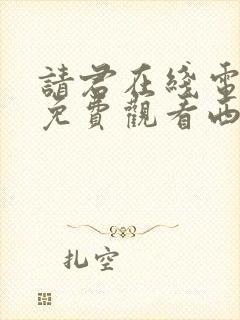 請君在綫電
免費觀看西
扎空